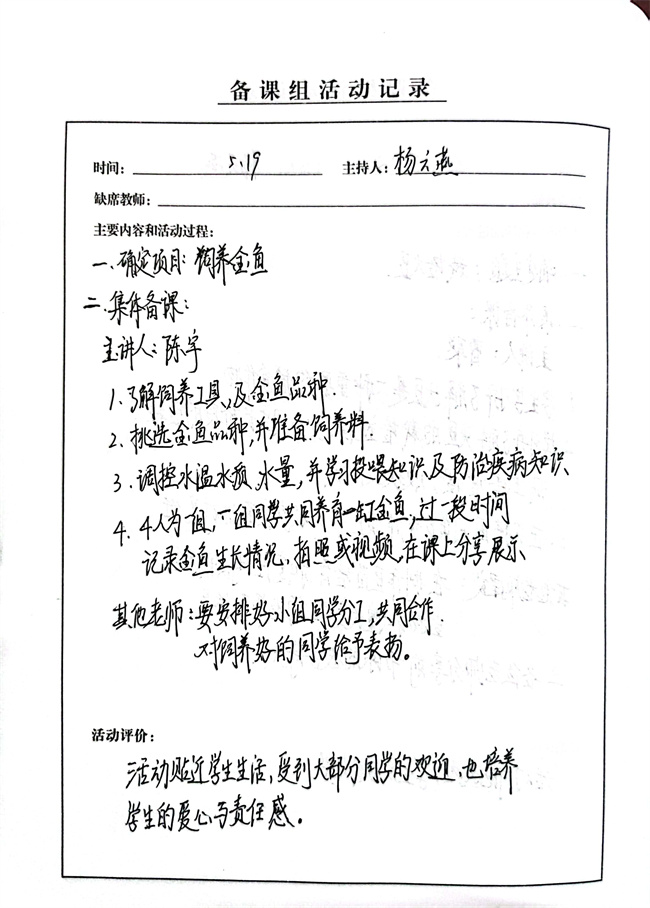 备课组活动记录
时间: 5.19 主持人: 杨立燕
缺席教师:
主要内容和活动过程:
一、确定项目: 饲养金鱼
二、集体备课:
主讲人: 陈宇
1、了解饲养工具,及金鱼品种.
2、挑选金鱼品种,并准备饲养料
3、调控水温水质、水量,并学习投喂知识及防治疾病知识
4、4人为一组,一组同学共同养育一缸金鱼,过一段时间
记录金鱼生长情况,拍照或视频,在课上分享展示
其他老师:要安排好小组同学分工,共同合作.
对饲养好的同学给予表扬。
活动评价:
活动贴近学生生活,受到大部分同学的欢迎,也培养
学生的爱心与责任感。